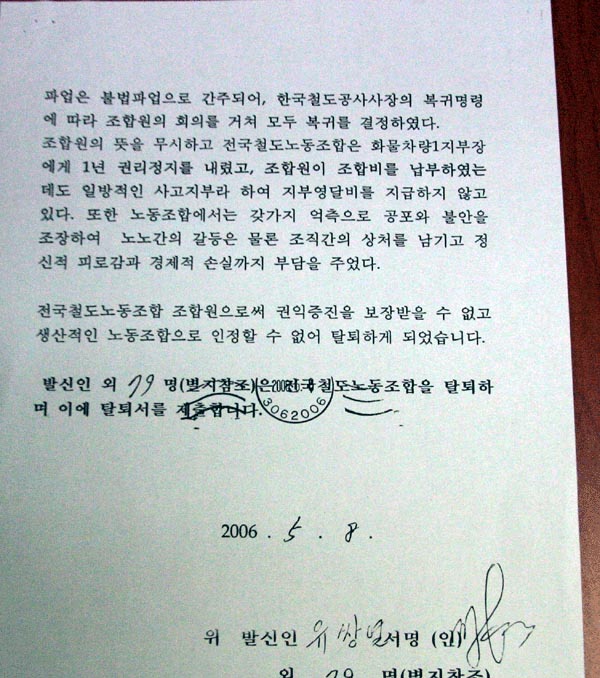 파업은 불법파업으로 간주되어, 한국철도공사사장의 복귀명령
에 따라 조합원의 회의를 거쳐 모두 복귀를 결정하였다.
조합원의 뜻을 무시하고 전국철도노동조합은 화물차량1지부장
에게 1년 권리정지를 내렸고, 조합원이 조합비를 납부하였는
데도 일방적인 사고지부라 하여 지부영달비를 지급하지 않고
있다. 또한 노동조합에서는 갖가지 억측으로 공포와 불안을
조장하여 노노간의 갈등은 물론 조직간의 상처를 남기고 정
신적 피로감과 경제적 손실까지 부담을 주었다.
전국철도노동조합 조합원으로써 권익증진을 보장받을 수 없고
생산적인 노동조합으로 인정할 수 없어 탈퇴하게 되었습니다.
발신인 외 79 명(별지참조)은 전국철도노동조합을 탈퇴하
며 이에 탈퇴서를 제출합니다.
3062006
2006 . 5 . 8 .
위 발신인 유쌍열 서명 (인)
외 79 명(별지참조)